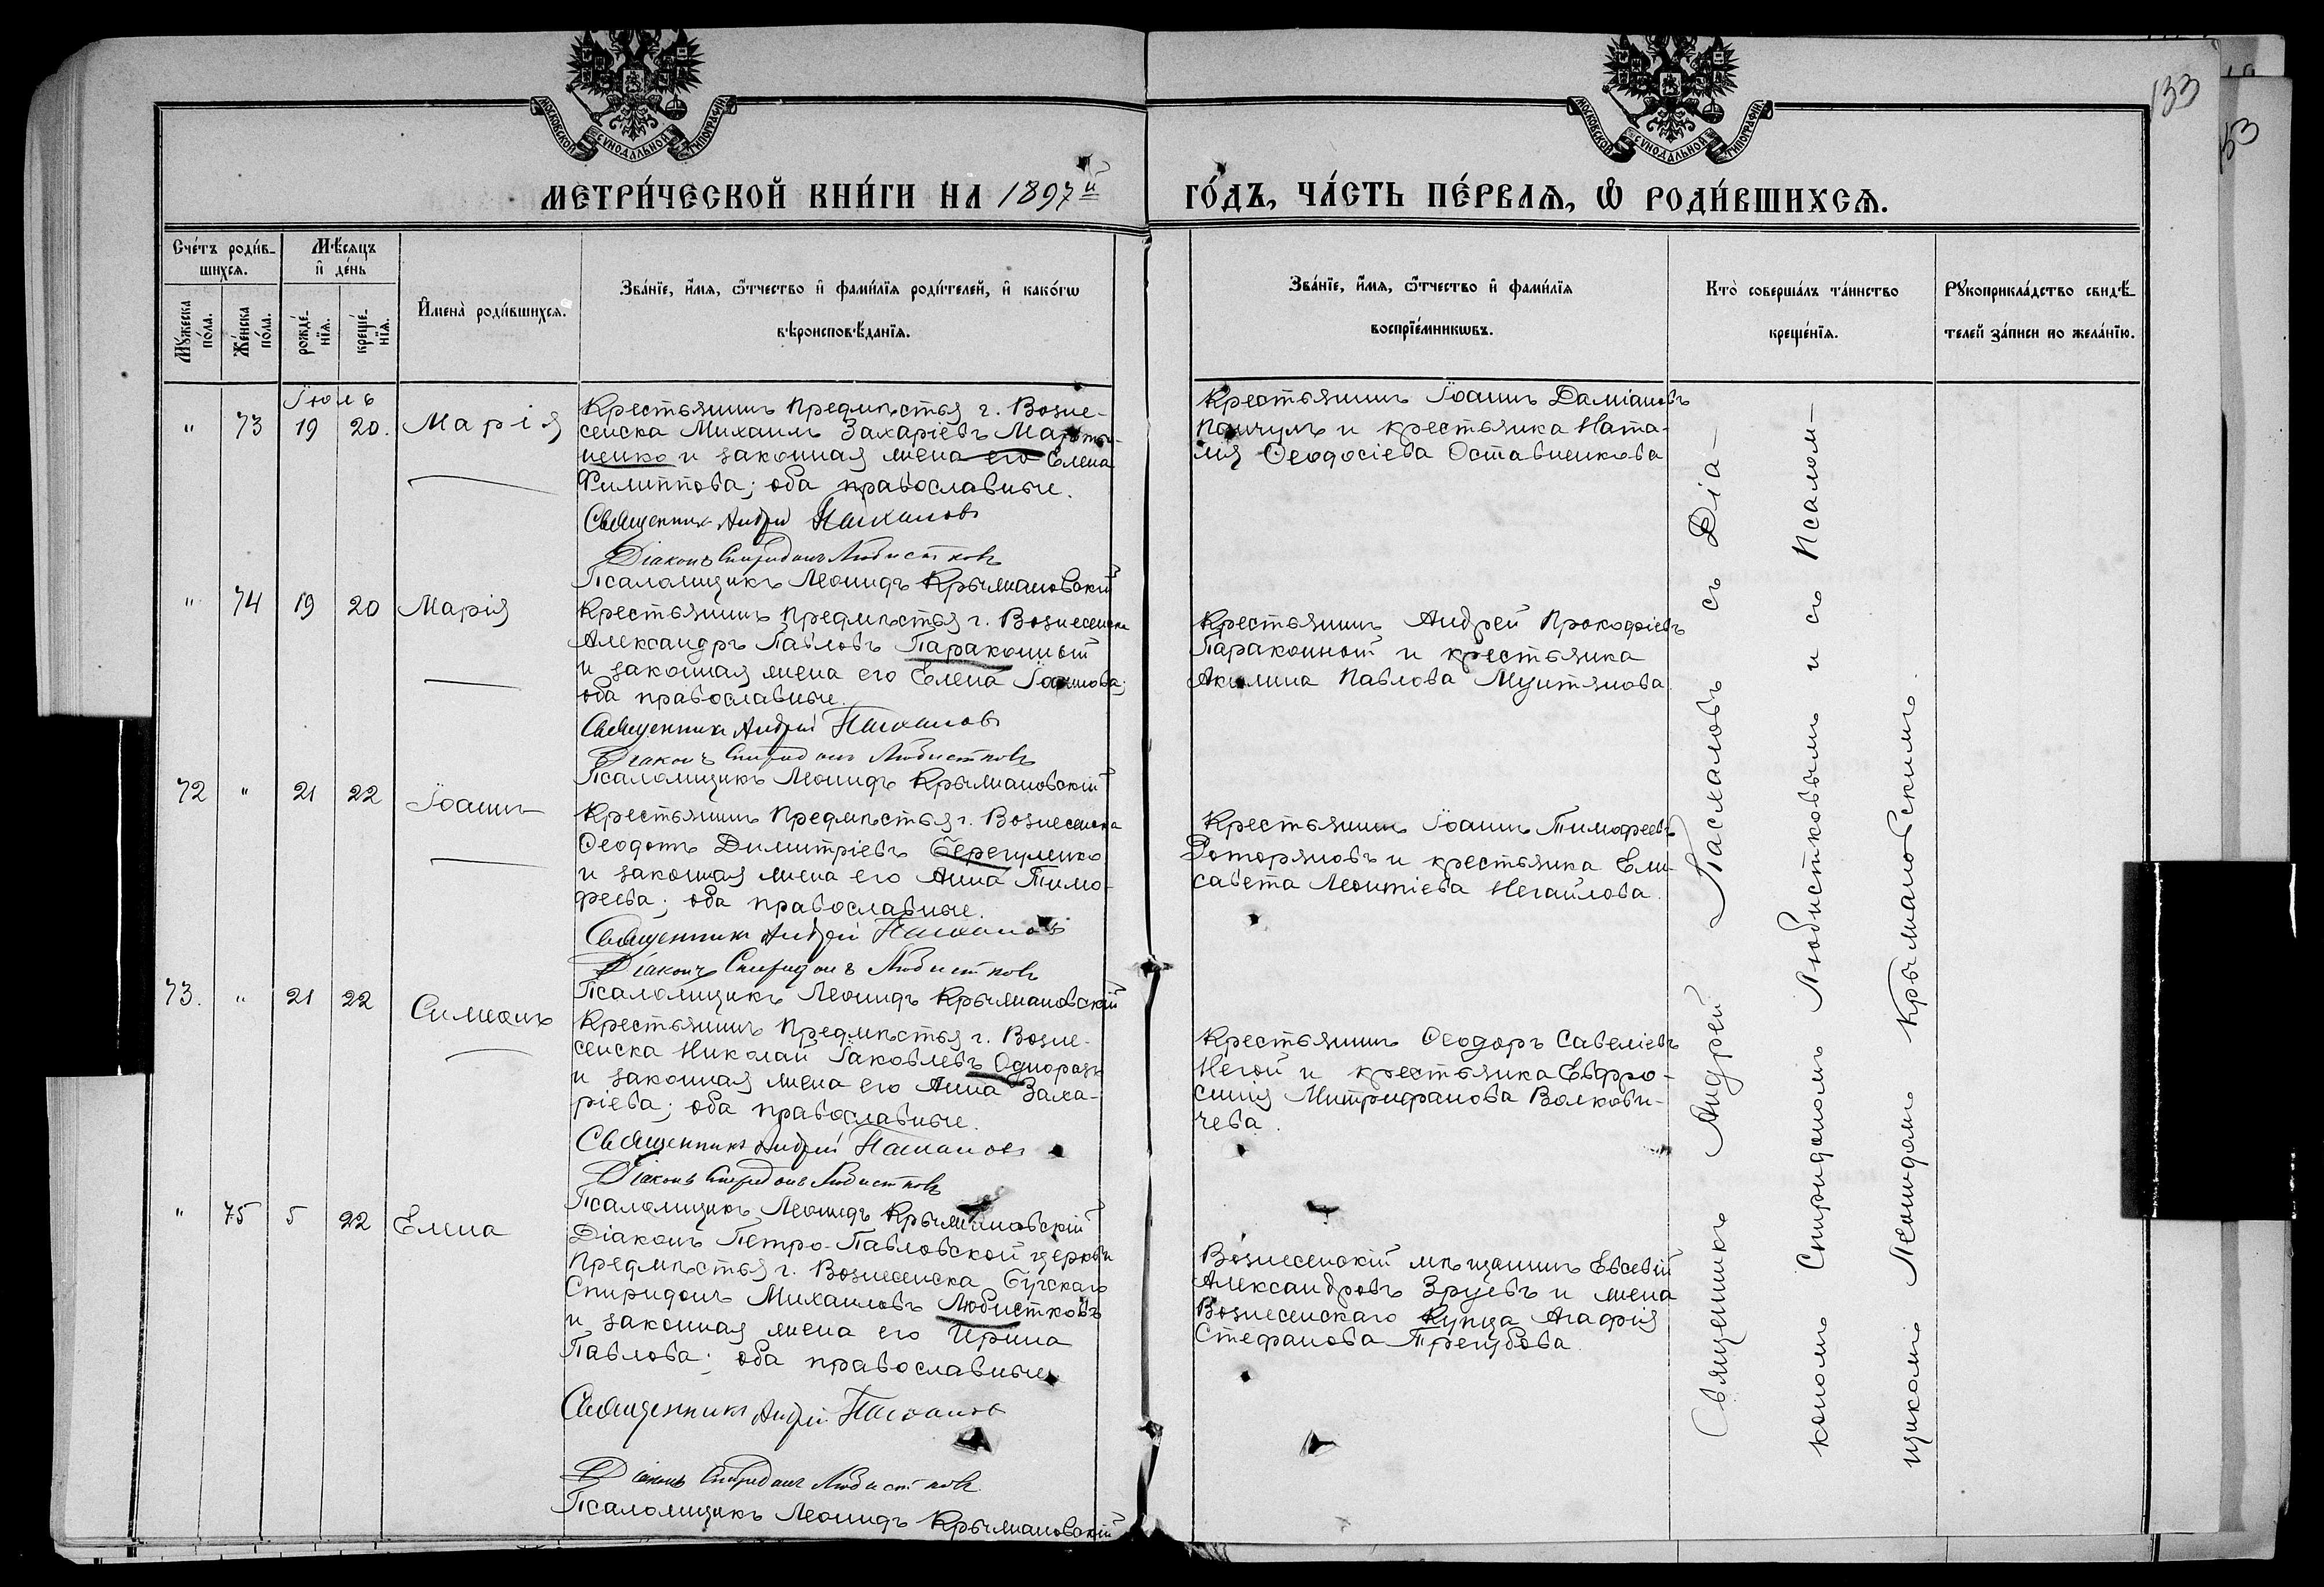 МОСКОВСКОЙ СѴНОДАЛЬНОЙ ТИПОГРАФІИ
МОСКОВСКОЙ СѴНОДАЛЬНОЙ ТИПОГРАФІИ
133
МЕТРИ́ЧЕСКОЙ КНИ́ГИ НА 1897й ГО́ДЪ, ЧА́СТЬ ПЕ́РВАѦ, Ѡ҆ РОДИ́ВШИХСѦ.
Сче́тъ роди́в-
шихсѧ.
Мѣ́сяцъ
и҆ де́нь
Мꙋ́жеска по́ла.
Же́нска по́ла.
рожде́-
нїѧ.
креще́-
нїѧ.
И҆мена̀ роди́вшихсѧ.
Зва́нїе, и҆́мѧ, ѻ҆́тчество и҆ фами́лїѧ роди́телей, и҆ како́гѡ
вѣроисповѣ́данїѧ.
Зва́нїе, и҆́мѧ, ѻ҆́тчество и҆ фами́лїѧ
воспрїе́мникѡвъ.
Кто̀ соверша́лъ та́инство
креще́нїѧ.
Рꙋкоприкла́дство свидѣ́-
телей за́писи по жела́нїю.
Іюль
" 73 19 20. Марія
Крестьянинъ предмѣстья г. Возне-
сенска Михаилъ Захаріевъ Марты-
ненко и законная жена его Елена
Филиппова; оба православные.
Священникъ Андрей Пасхаловъ
Діаконъ Спиридонъ Любистковъ
Псаломщикъ Леонидъ Крыжановскій
Крестьянинъ Іоаннъ Даміановъ
и крестьянка Ната-
лія Ѳеодосіева Оставненкова
" 74 19 20 Марія
Крестьянинъ предмѣстья г. Вознесенска
Александръ Павловъ Параконный
и законная жена его Елена Іоаннова;
оба православные.
Священникъ Андрей Пасхаловъ
Діаконъ Спиридонъ Любистковъ
Псаломщикъ Леонидъ Крыжановскій
Крестьянинъ Андрей Прокофіевъ
Параконной и крестьянка
Акилина Павлова Мунтянова.
72 " 21 22 Іоаннъ
Крестьянинъ предмѣстья г. Вознесенска
Ѳеодотъ Димитріевъ Берегуленко
и законная жена его Анна Тимо-
феева; оба православные.
Священникъ Андрей Пасхаловъ
Діаконъ Спиридонъ Любистковъ
Псаломщикъ Леонидъ Крыжановскій
Крестьянинъ Іоаннъ Тимофеевъ
Роторяновъ и крестьянка Ели-
савета Леонтіева Негайлова.
73. " 21 22 Симеонъ
Крестьянинъ предмѣстья г. Возне-
сенска Николай Іаковлевъ Одноразъ
и законная жена его Анна Заха-
ріева; оба православные.
Священникъ Андрей Пасхаловъ
Діаконъ Спиридонъ Любистковъ
Псаломщикъ Леонидъ Крыжановскій
Крестьянинъ Ѳеодоръ Савеліевъ
Негой и крестьянка Евфро-
синія Митрофанова Волкови-
чева.
" 75 5 22 Елена
Діаконъ Петро-Павловской церкви
предмѣстья г. Вознесенска Бугскаго
Спиридонъ Михаиловъ Любистковъ
и законная жена его Ирина
Павлова; оба православные.
Священникъ Андрей Пасхаловъ
Діаконъ Спиридонъ Любистковъ
Псаломщикъ Леонидъ Крыжановскій
Вознесенскій мѣщанинъ Евсевій
Александровъ Зруевъ и жена
Вознесенскаго купца Агафія
Стефанова Трегубова.
Священникъ Андрей Пасхаловъ съ Діа-
кономъ Спиридономъ Любистковымъ и съ Псалом-
щикомъ Леонидомъ Крыжановскимъ.